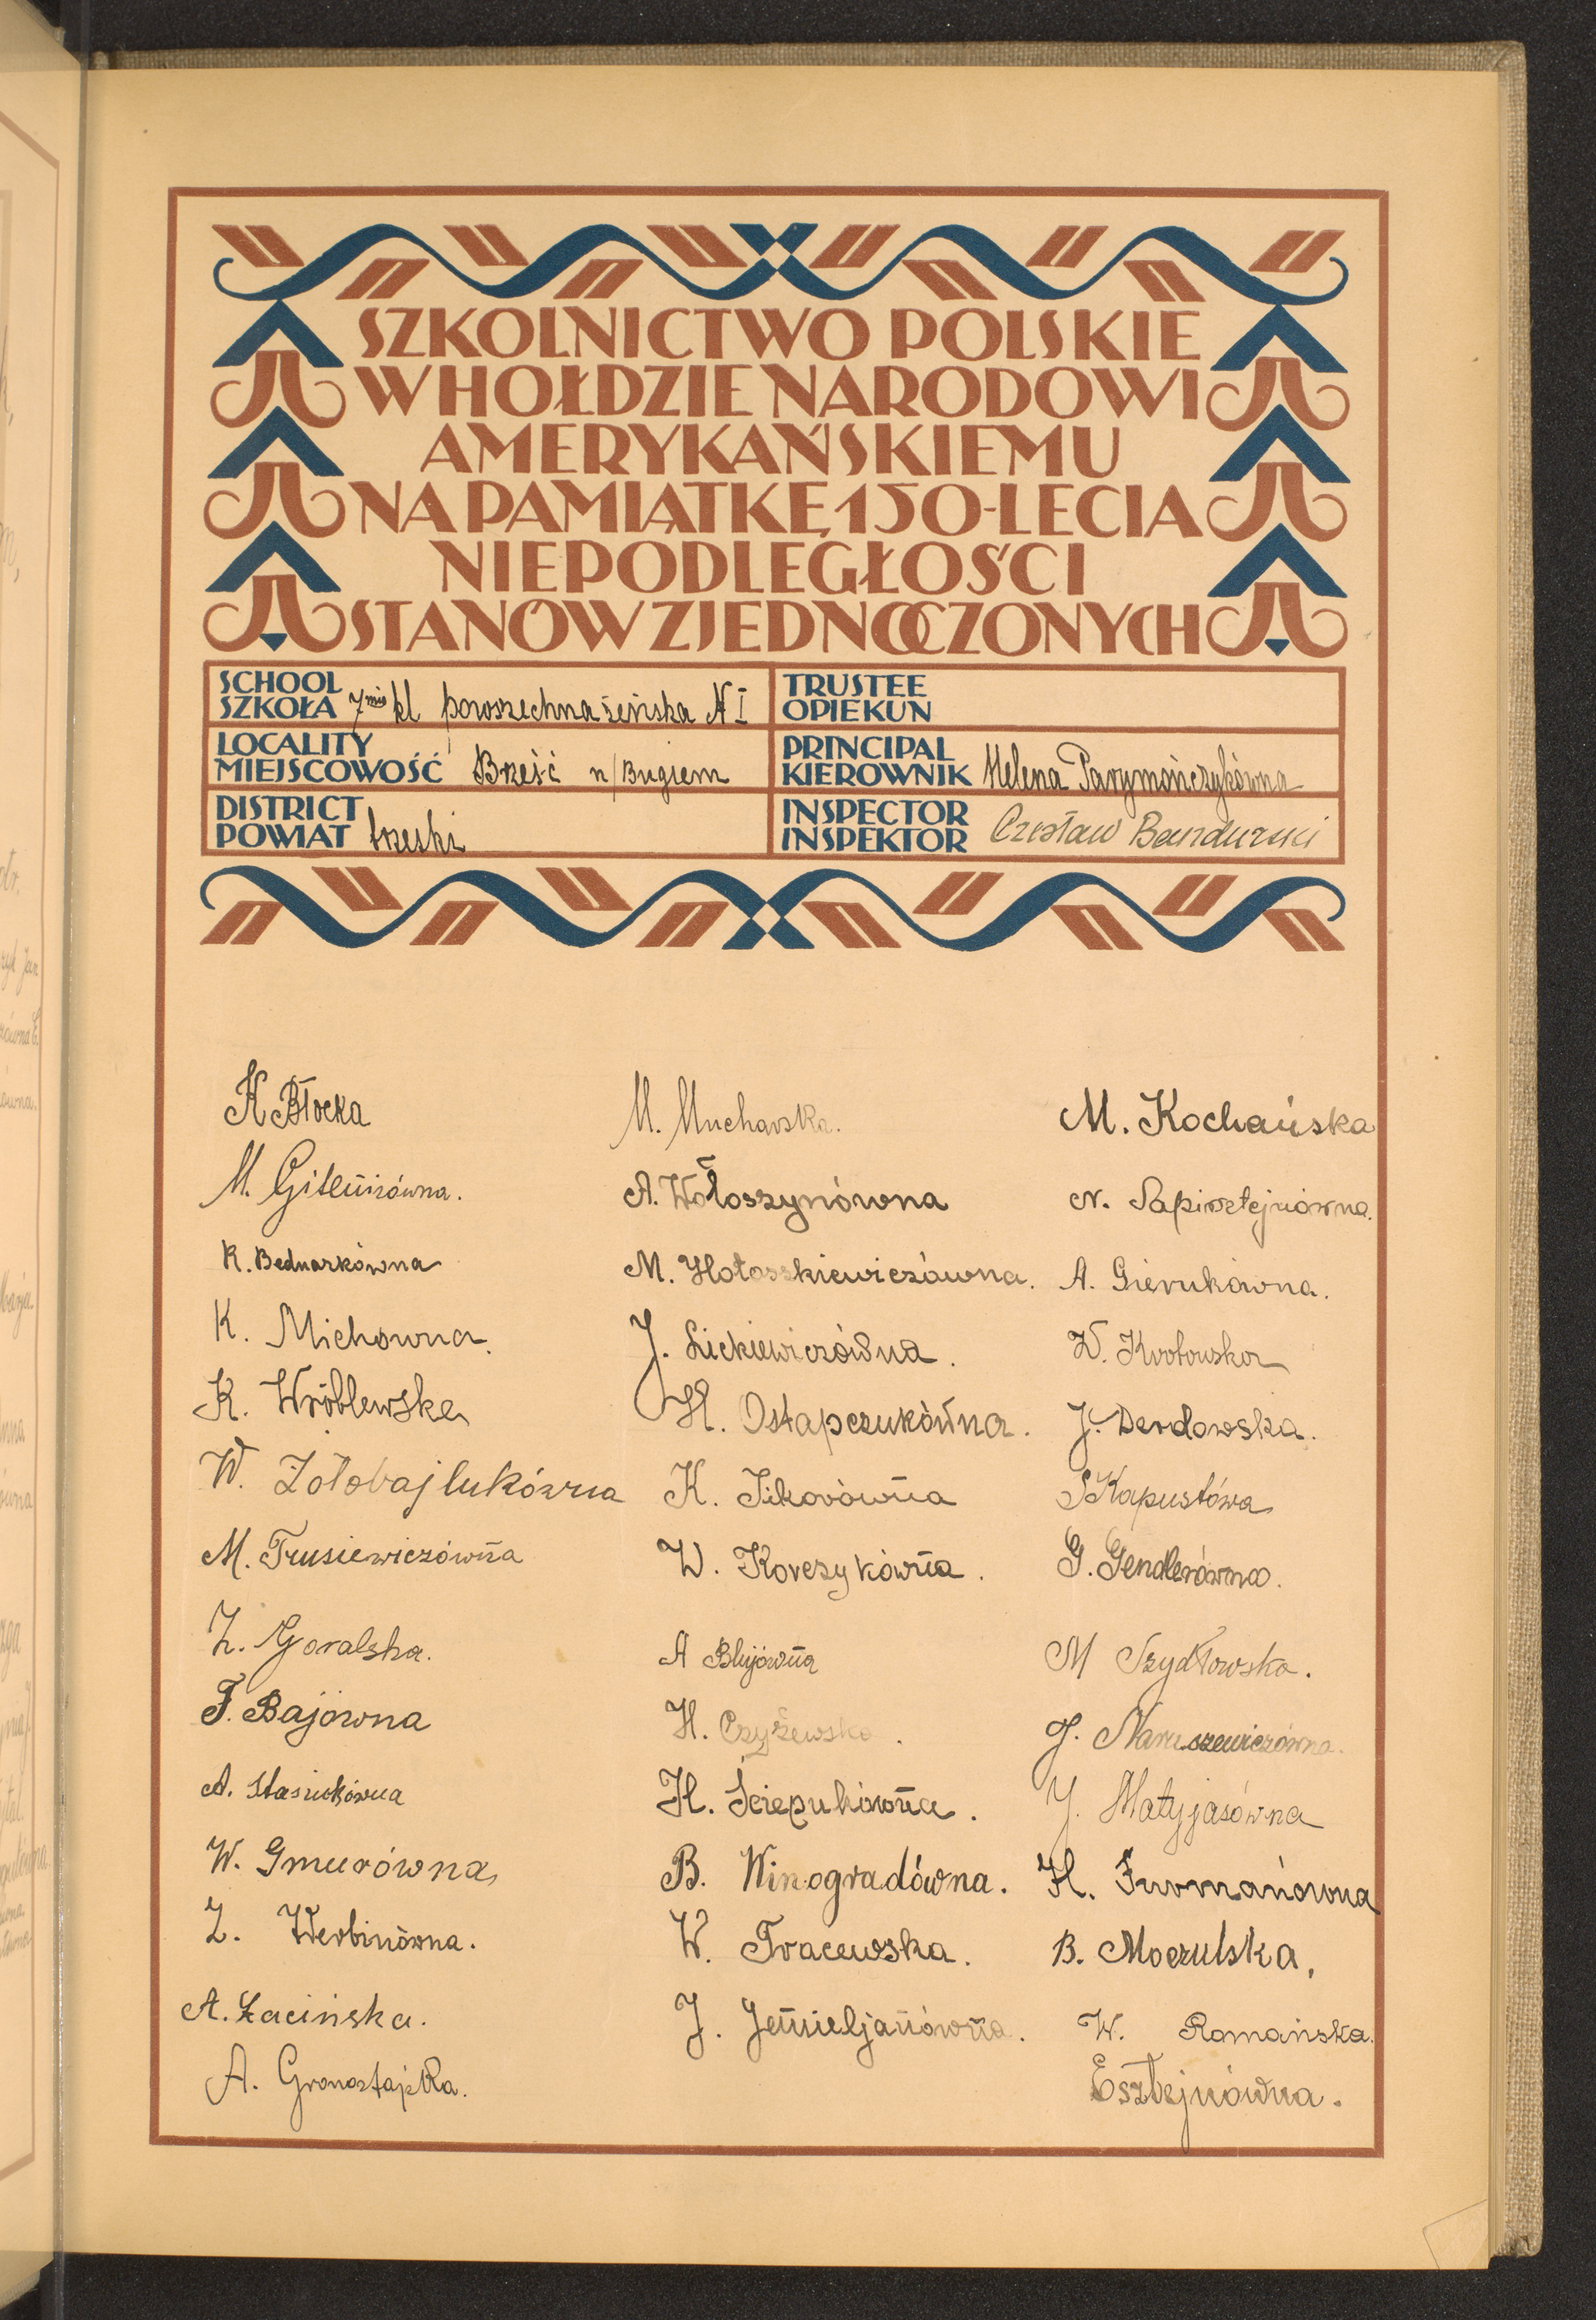 SZKOLNICTWO POLSKIE
W HOŁDZIE NARODOWI
AMERYKAŃSKIEMU
NA PAMIĄTKĘ 150-LECIA
NIEPODLEGŁOŚCI
STANÓW ZJEDNOCZONYCH
SCHOOL
SZKOŁA 7mio kl powszechna żeńska N I
TRUSTEE
OPIEKUN
LOCALITY
MIEJSCOWOŚĆ Brześć n/Bugiem
PRINCIPAL
KIEROWNIK Helena Parymończykówna
DISTRICT
POWIAT brzeski
INSPECTOR
INSPEKTOR Czesław Bandurski
K Błocka
M. Gilewiczówna.
K. Bednarkówna
K. Michowna.
K. Wróblewska
W. Żołobajlukówna
M. Trusiewiczówna
Z. Goralska.
F. Bajówna
A. Stasiukówna
W. Gmurówna
Z. Werbinówna.
A. Łacińska.
A. Gronostajska.
M. Muchavska.
A. Wołoszynówna
M. Hołoskiewiczówna.
J. Lickiewiczówna.
H. Ostapczukówna.
K. Sikorówna
W. Korczykówna.
A Blujówna
H. Czyżewska.
H. Ściepukówna.
B. Winogradówna.
W. Tracewska.
J. Jemieljanówna.
M. Kochańska
N. Sapirsztejnówna.
A. Gierukówna.
W. Kvotowska
J. Derdowska.
S Kapustówa
G. Gendlerówna.
M Szydłowska.
J. Naruszewiczówna.
J. Matyjasówna
H. Furmanówna
B. Moczulska.
W. Romańska.
Esztejnówna.